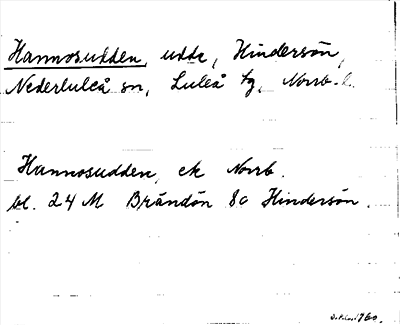 Hannosudden, udde, Hindersön,
Nederluleå sn, Luleå tg, Norrb. l.
Hannosudden, ek Norrb.
bl. 24 M Brändön 8a Hindersön.
1760.